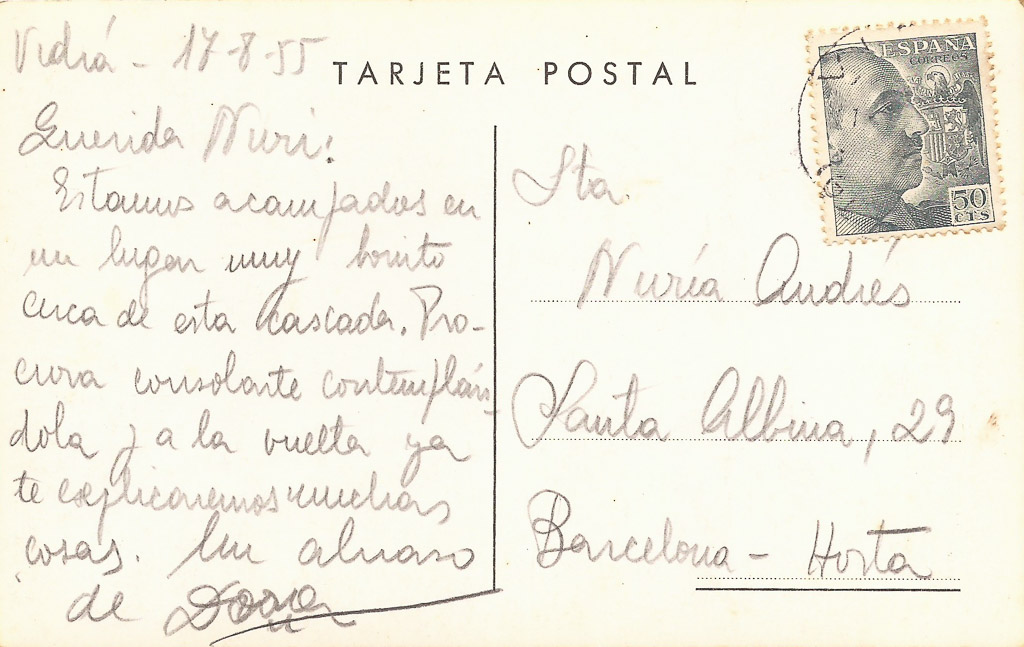 Vidrá - 17-8-55
TARJETA POSTAL
ESPAÑA
CORREOS
50
CTS
Querida Nuri:
Estamos acampados en
un lugar muy bonito
cerca de esta cascada. Pro-
cura consolarte contemplán-
dola y a la vuelta ya
te explicaremos muchas
cosas. Un abrazo
de
Sta.
Nuría Andrés
Santa Albina, 29
Barcelona - Horta